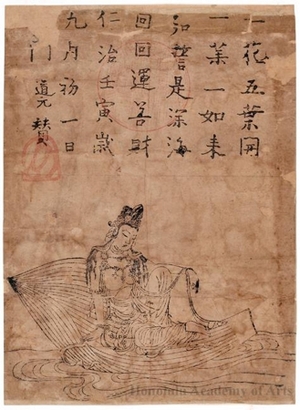 一花五葉開
一葉一如来
弘誓是深海
回回運善財
仁治壬寅歳
九月初一日
道元賛
Honolulu Academy of Arts